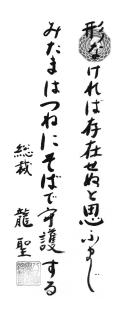 形なければ存在せぬと思ふまじ
みたまはつねにそばで守護する
総裁
龍聖